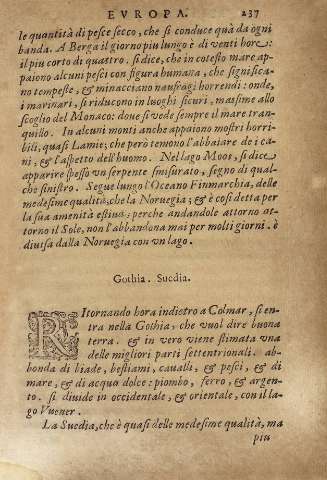 EVROPA. 237
le quantità di pesce secco, che si conduce quà da ogni
banda. A Berga il giorno piu lungo è di venti hore:
il piu corto di quattro. si dice, che in cotesto mare ap-
paiono alcuni pesci con figura humana, che significa-
no tempeste, & minacciano naufragi horrendi: onde,
i marinari, si riducono in luoghi sicuri, massime allo
scoglio del Monaco: doue si vede sempre il mare tran-
quillo. In alcuni monti anche appaiono mostri horri-
bili, quasi Lamie; che però temono l'abbaiare de i ca-
ni, & l'aspetto dell'huomo. Nel lago Moos, si dice
apparire spesso vn serpente smisurato, segno di qual-
che sinistro. Segue lungo l'Oceano Finmarchia, delle
medesime qualità, che la Noruegia; & è così detta per
la sua amenità estiua: perche andandole attorno at-
torno il Sole, non l'abbandona mai per molti giorni. è
diuisa dalla Noruegia con vn lago.
Gothia. Suedia.
RItornando hora indietro a Colmar, si en-
tra nella Gothia, che vuol dire buona
terra. & in vero viene stimata vna
delle migliori parti settentrionali. ab-
bonda di biade, bestiami, caualli, & pesci, & di
mare, & di acqua dolce: piombo, ferro, & argen-
to. si diuide in occidentale, & orientale, con il la-
go Vuener.
La Suedia, che è quasi delle medesime qualità, ma
piu